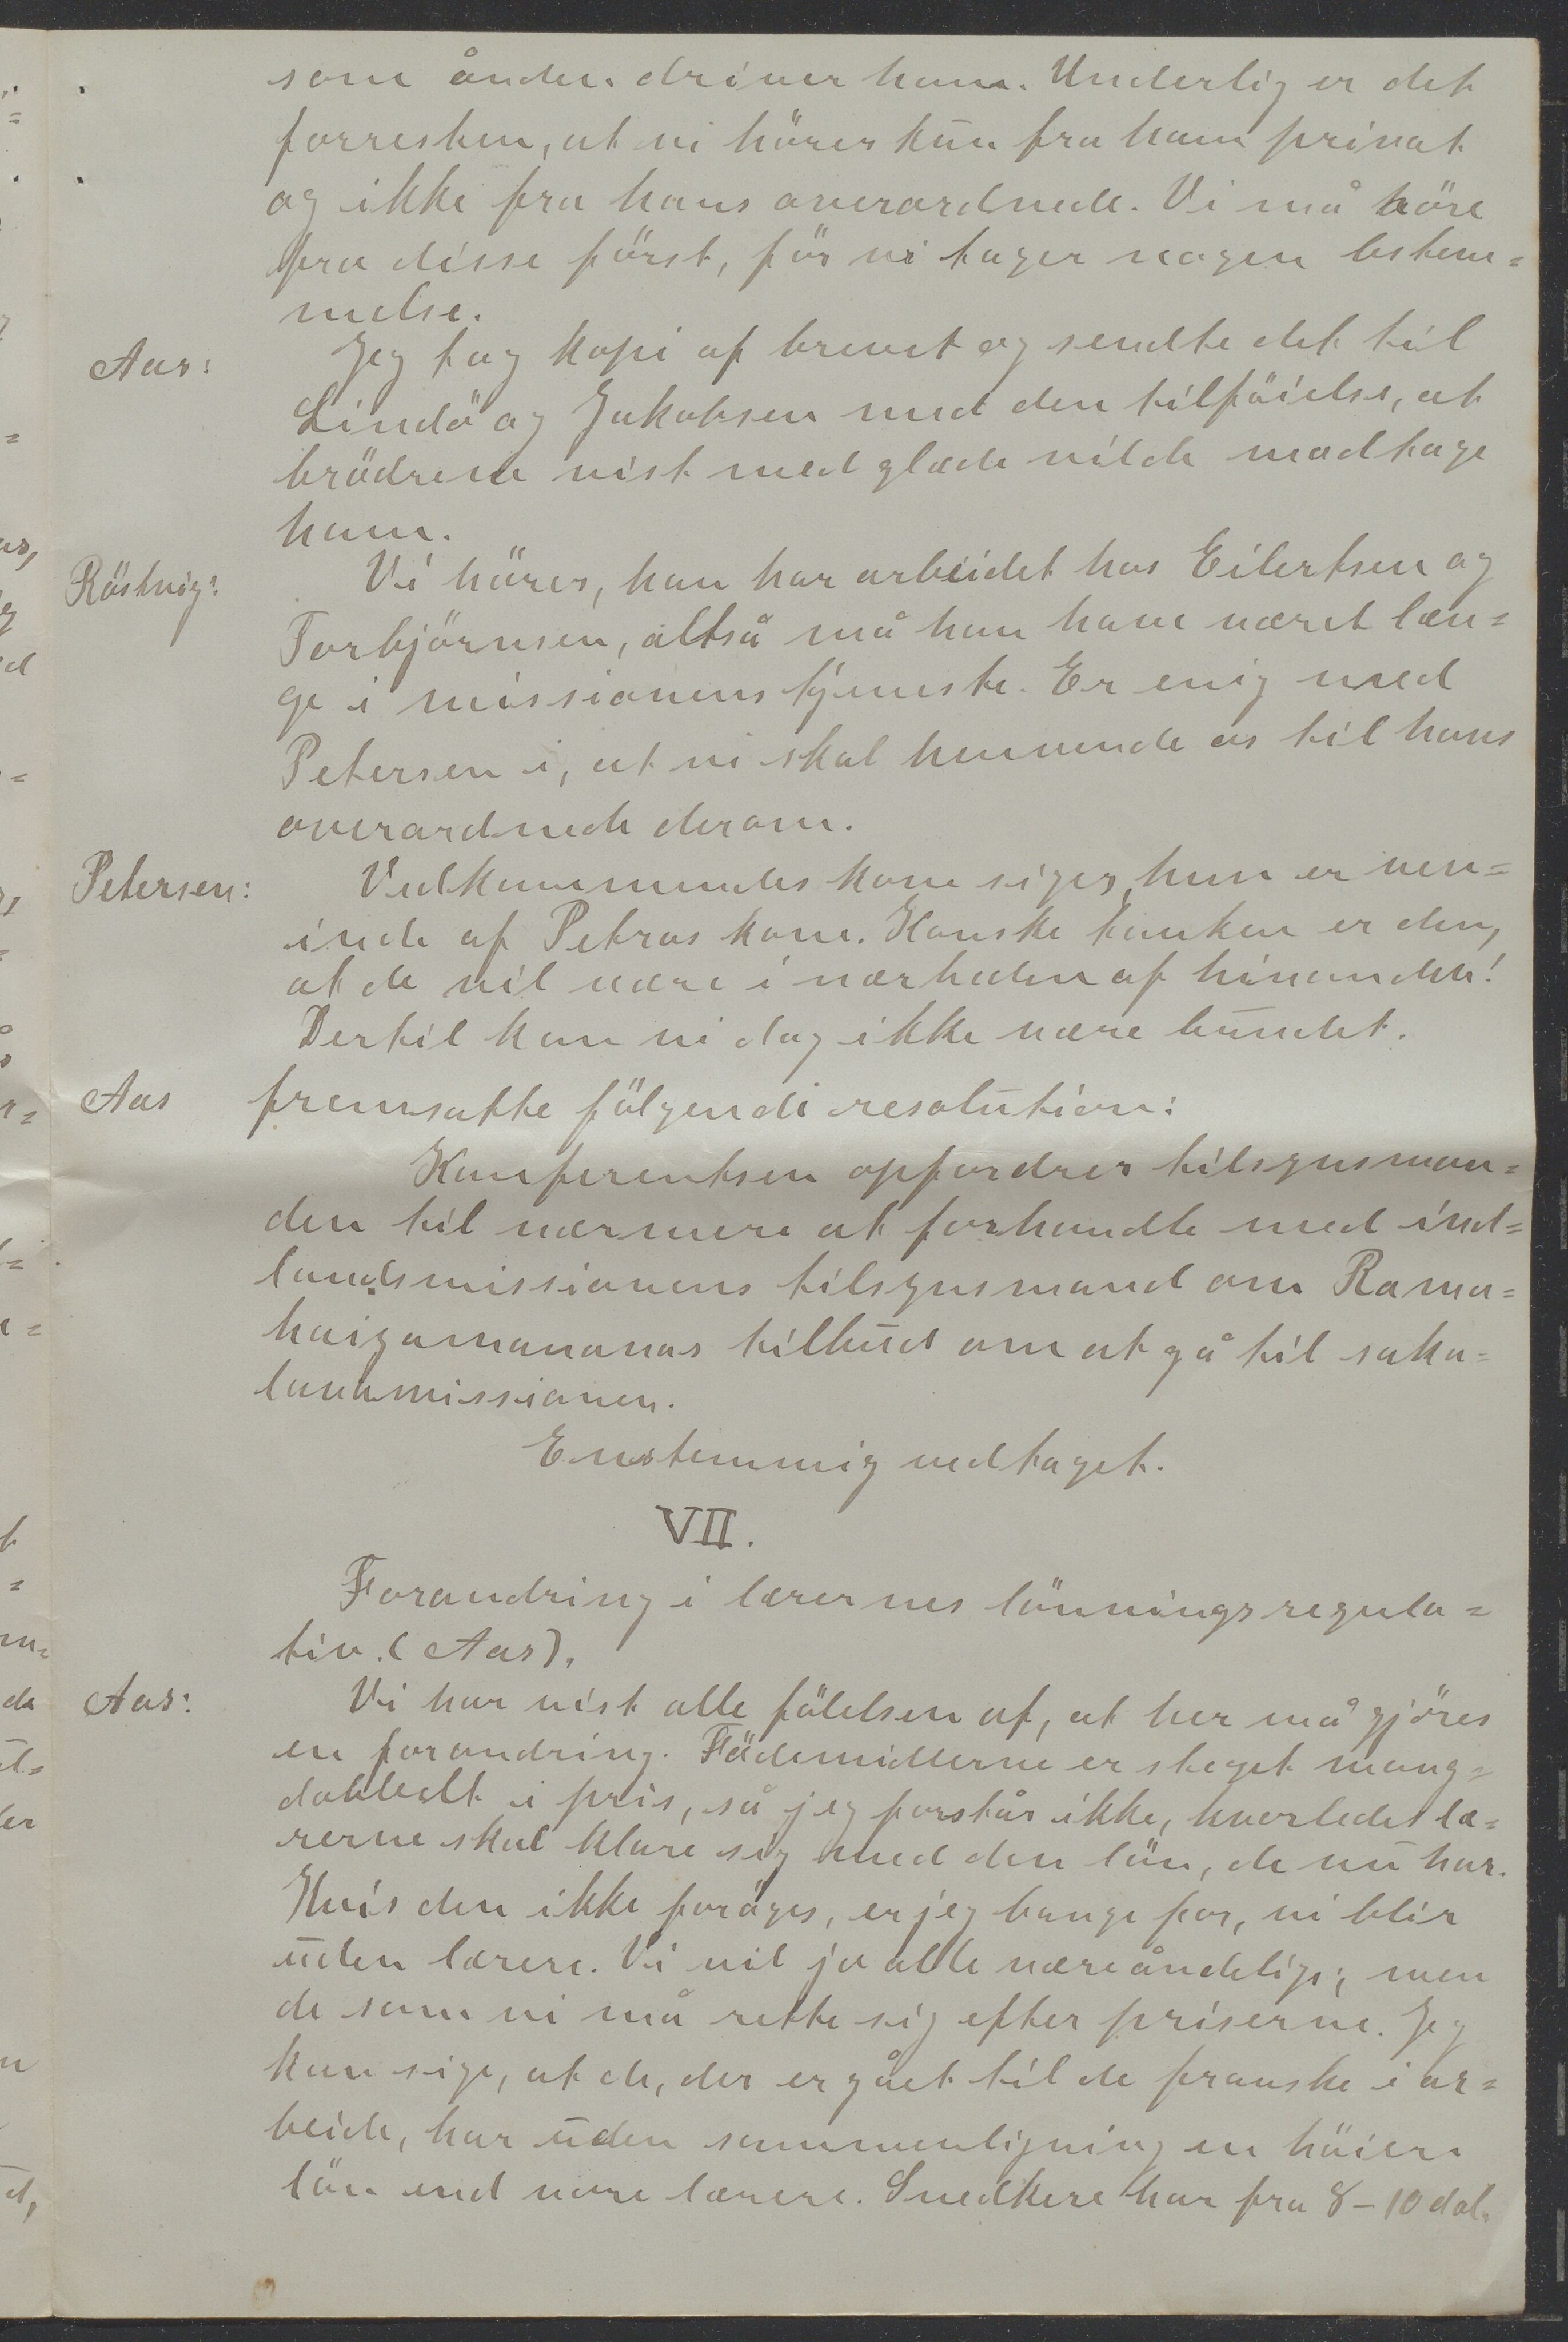 som ånden driver ham. Underlig er det
forresten, at vi hörer kun fra ham privat
og ikke fra hans overordnede. Vi må höre
fra disse först, för vi tager nogen bestem=
melse.
Aas: Jeg tog kopi af brevet og sendte det til
Lindö og Jakobsen med den tilföielse, at
brödrene vist med glæde vilde modtage
ham.
Röstvig: Vi hörer, han har arbeidet hos Eilertsen og
Torbjörnsen, altså må han have været læn=
ge i missionens tjeneste. Er enig med
Petersen i, at vi skal henvende os til hans
overordnede derom.
Petersen: Vedkommendes kone siges, hun er ven=
inde af Petros kone. Kanske tanken er den,
at de vil være i nærheden af hinanden!
Dertil kan vi dog ikke være bundet.
Aas fremsatte fölgende resolution:
Konferentsen opfordrer tilsynsman=
den til nærmere at forhandle med ind=
landsmissionens tilsynsmand om Rama=
haizamananas tilbud om at gå til saka=
lavamissionen.
Enstemmig vedtaget.
VII.
Forandring i lærernes lönningsregula=
tiv. (Aas).
Aas: Vi har vist alle fölelsen af, at her må gjöres
en forandring. Födemidlerne er steget mang=
dobbelt i pris, så jeg forstår ikke, hvorledes læ=
rerne skal klare sig med den lön, de nu har.
Hvis den ikke foröges, er jeg bange for, vi blir
uden lærere. Vi vil jo alle være åndelige; men
de som vi må rette sig efter priserne. Jeg
kan sige, at de, der er gået til de franske i ar=
beide, har uden sammenligning en höiere
lön end vore lærere. Snedkere har fra 8-10 dol.